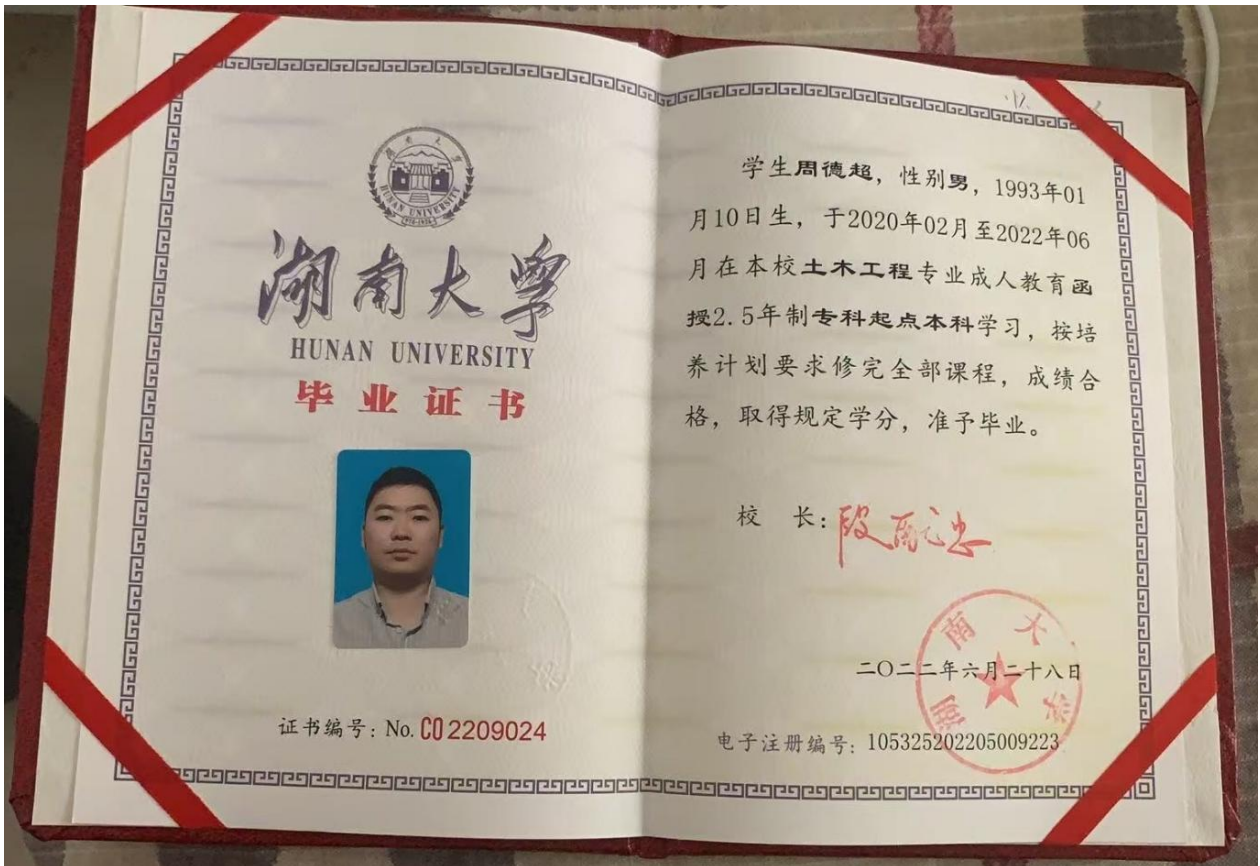 湖南大学
HUNAN UNIVERSITY
湖南大学
HUNAN UNIVERSITY
毕业证书
证书编号：No. CO 2209024
学生周德超，性别男，1993年01
月10日生，于2020年02月至2022年06
月在本校土木工程专业成人教育函
授2.5年制专科起点本科学习，按培
养计划要求修完全部课程，成绩合
格，取得规定学分，准予毕业。
校 长：段献忠
湖南大学
二〇二二年六月二十八日
电子注册编号：105325202205009223